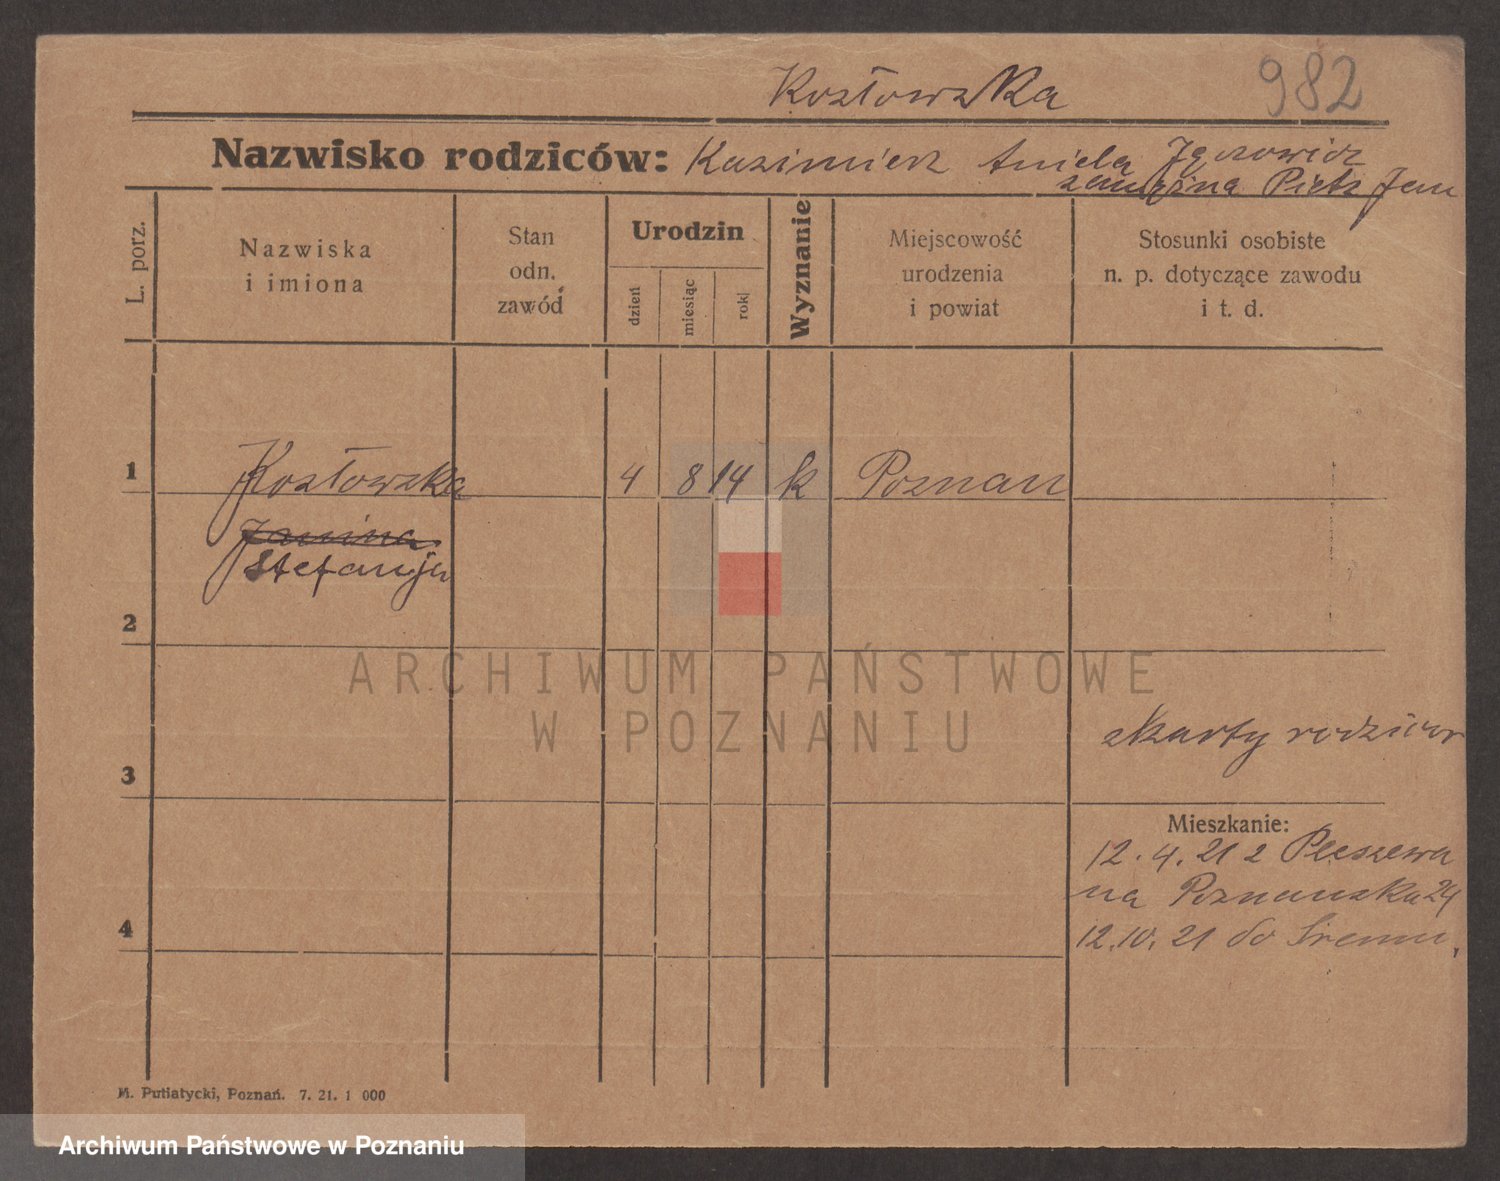 Kozłowska 982
Nazwisko rodziców: Kazimierz Aniela
Pietz Jan
L. porz.
Nazwiska
i imiona
Stan
odn.
zawód
Urodzin
dzień
miesiąc
rok
Wyznanie
Miejscowość
urodzenia
i powiat
Stosunki osobiste
n. p. dotyczące zawodu
i t. d.
1 Kozłowska 4 8 14 k Poznan
Janina
Stefanja
2
ARCHIWUM PAŃSTWOWE
W POZNANIU
z karty rodziców
3
Mieszkanie:
12.4.21 z Pleszewa
na Poznanska 24
4 12.10.21 do Śremu.
M. Putiatycki, Poznań. 7. 21. 1 000
Archiwum Państwowe w Poznaniu